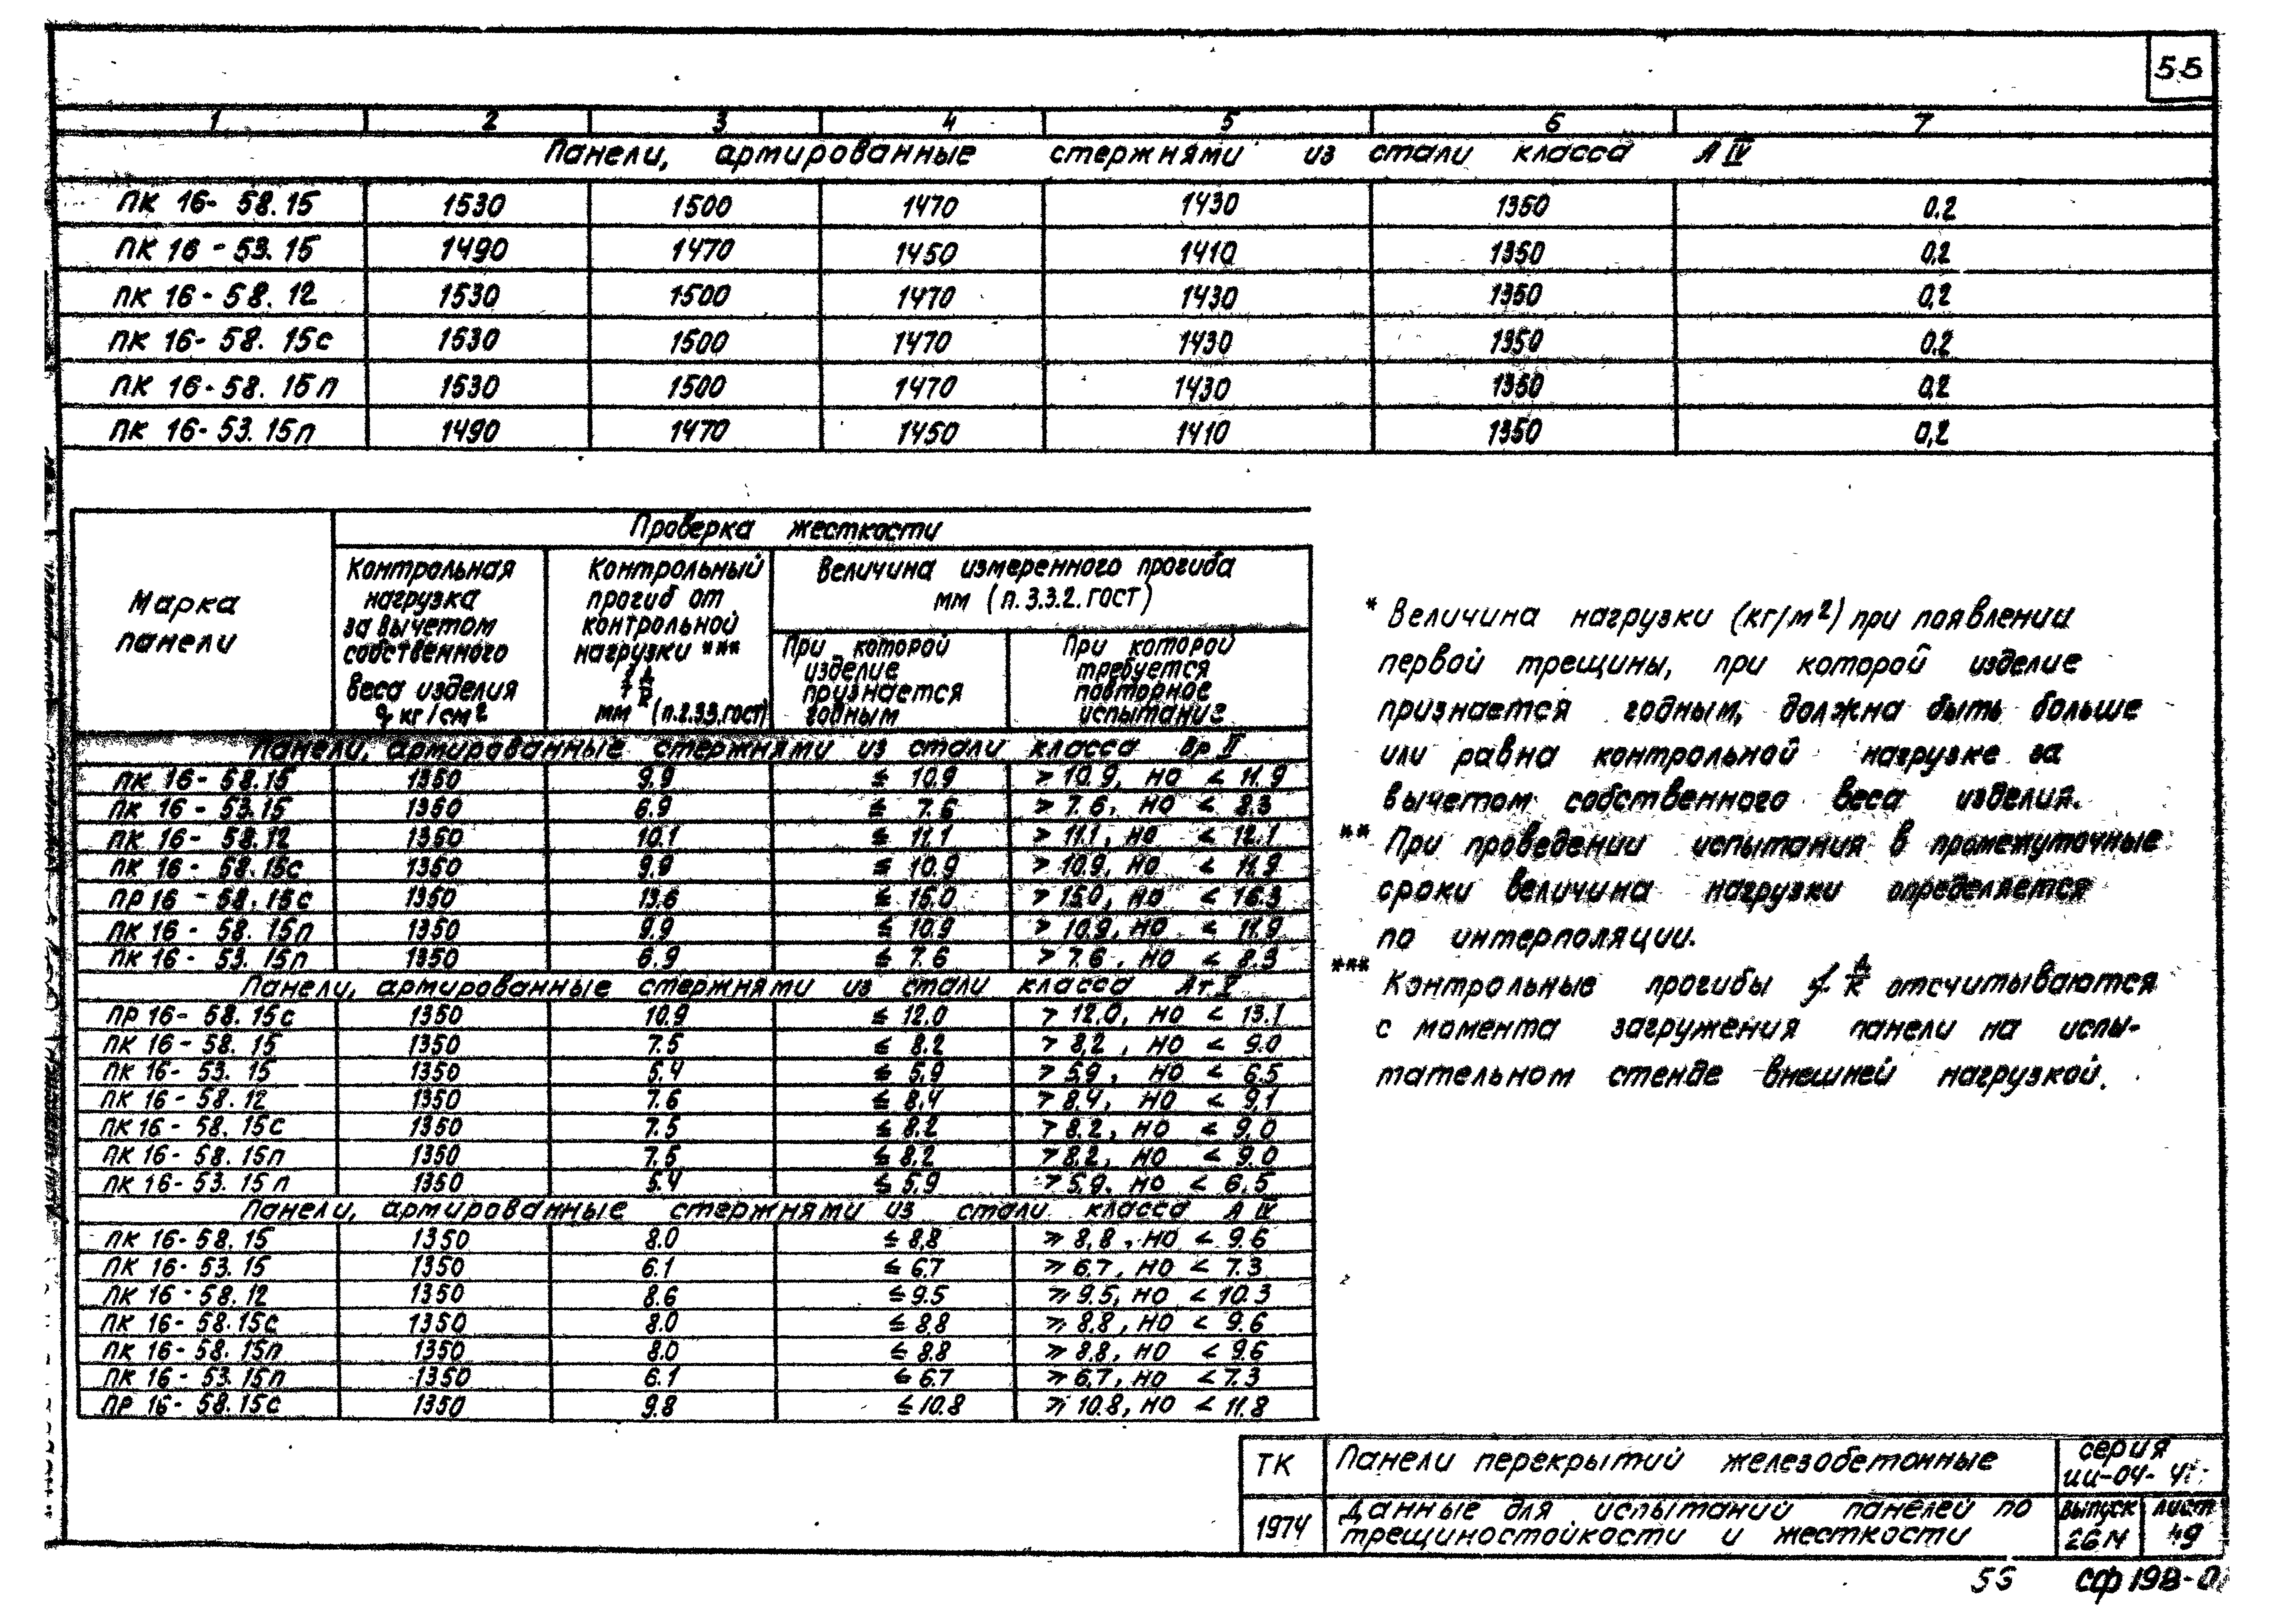 55
1 2 3 4 5 6 7
Панели, армированные стержнями из стали класса А IV
ПК 16- 58.15 1530 1500 1470 1430 1350 0.2
ПК 16 - 53.15 1490 1470 1450 1410 1350 0,2
ПК 16- 58.12 1530 1500 1470 1430 1350 0,2
ПК 16- 58. 15с 1530 1500 1470 1430 1350 0.2
ПК 16-58. 15п 1530 1500 1470 1430 1350 0,2
ПК 16-53. 15п 1490 1470 1450 1410 1350 0,2
Марка
панели
Проверка жесткости
Контрольная
нагрузка
за вычетом
собственного
веса изделия
q кг/см²
Контрольный
прогиб от
контрольной
нагрузки ***
мм (п.2.3.3.ГОСТ)
Величина измеренного прогиба
мм (п.3.3.2.ГОСТ)
При которой
изделие
признается
годным
При которой
требуется
повторное
испытание
Панели, армированные стержнями из стали класса Вр II
ПК 16- 58.15 1350 9.9 ≤ 10.9 > 10.9, но < 11.9
ПК 16 - 53.15 1350 6.9 ≤ 7.6 > 7.6, но < 8.3
ПК 16- 58.12 1350 10.1 ≤ 11.1 > 11.1, но < 12.1
ПК 16 - 58.15с 1350 9.9 ≤ 10.9 > 10.9, но < 11.9
ПР 16 - 58.15с 1350 13.6 ≤ 15.0 > 15.0, но < 16.3
ПК 16- 58. 15п 1350 9.9 ≤ 10.9 > 10.9, но < 11.9
ПК 16- 53. 15п 1350 6.9 ≤ 7.6 > 7.6, но < 8.3
Панели, армированные стержнями из стали класса Ат V
ПР 16- 58. 15с 1350 10.9 ≤ 12.0 > 12.0, но < 13.1
ПК 16- 58. 15 1350 7.5 ≤ 8.2 > 8,2, но < 9.0
ПК 16- 53. 15 1350 5.4 ≤ 5,9 > 5,9, но < 6.5
ПК 16 - 58.12 1350 7.6 ≤ 8,4 > 8,4, но < 9,1
ПК 16 - 58. 15с 1350 7.5 ≤ 8.2 > 8.2, но < 9.0
ПК 16- 58. 15п 1350 7.5 ≤ 8,2 > 8.2, но < 9.0
ПК 16- 53. 15п 1350 5.4 ≤ 5,9 > 5,9. но < 6.5
Панели, армированные стержнями из стали класса А IV
ПК 16-58. 15 1350 8.0 ≤ 8,8 ≥ 8,8, но < 9.6
ПК 16- 53. 15 1350 6.1 ≤ 6.7 ≥ 6.7, но < 7.3
ПК 16 - 58. 12 1350 8.6 ≤ 9.5 ≥ 9.5, но < 10.3
ПК 16- 58.15с 1350 8.0 ≤ 8.8 ≥ 8.8, но < 9.6
ПК 16- 58. 15п 1350 8.0 ≤ 8.8 ≥ 8.8, но < 9.6
ПК 16 - 53. 15п 1350 6.1 ≤ 6.7 ≥ 6,7, но < 7.3
ПР 16- 58.15с 1350 9.8 ≤ 10.8 ≥ 10.8, но < 11.8
* Величина нагрузки (кг/м²) при появлении
первой трещины, при которой изделие
признается годным, должна быть больше
или равна контрольной нагрузке за
вычетом собственного веса изделия.
** При проведении испытания в промежуточные
сроки величина нагрузки определяется
по интерполяции.
*** Контрольные прогибы f д/к отсчитываются
с момента загружения панели на испы-
тательном стенде внешней нагрузкой.
ТК Панели перекрытий железобетонные серия
ИИ-04-4
1974 Данные для испытаний панелей по
трещиностойкости и жесткости
выпуск лист
26 49
55 СФ 198-0